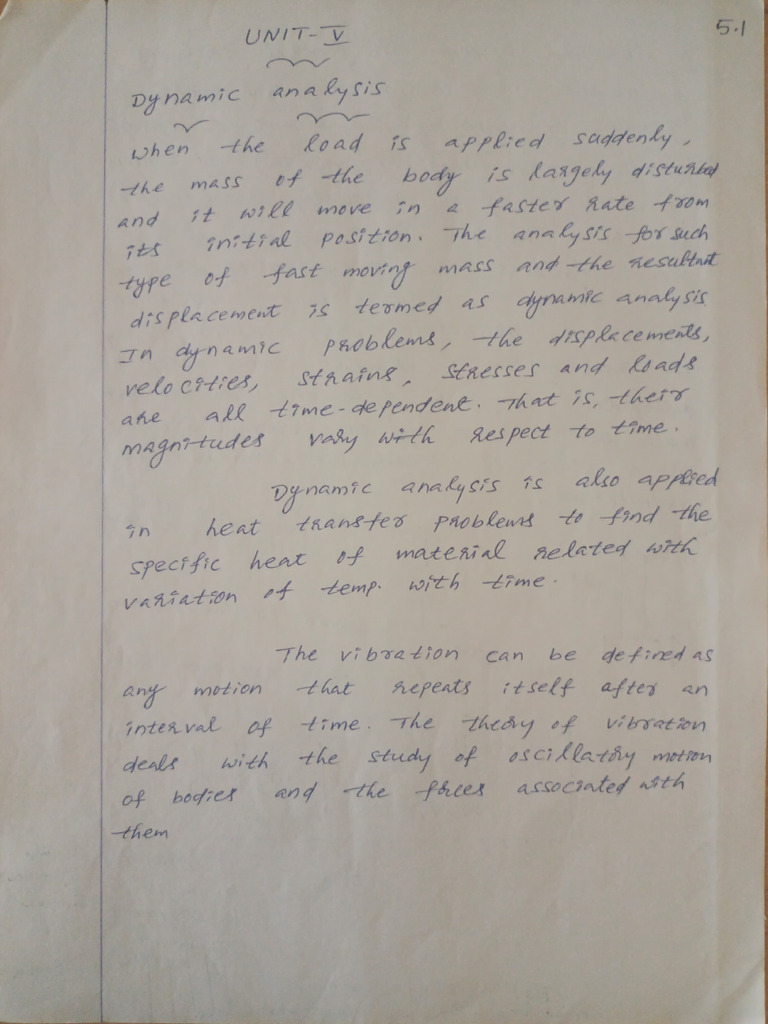 5.1
UNIT-V
Dynamic analysis
When the load is applied suddenly,
the mass of the body is largely disturbed
and it will move in a faster rate from
its initial position. The analysis for such
type of fast moving mass and the resultant
displacement is termed as dynamic analysis
In dynamic problems, the displacements,
velocities, strains, stresses and loads
are all time-dependent. That is, their
magnitudes vary with respect to time.
Dynamic analysis is also applied
in heat transfer problems to find the
specific heat of material related with
variation of temp. with time.
The vibration can be defined as
any motion that repeats itself after an
interval of time. The theory of vibration
deals with the study of oscillatory motion
of bodies and the forces associated with
them